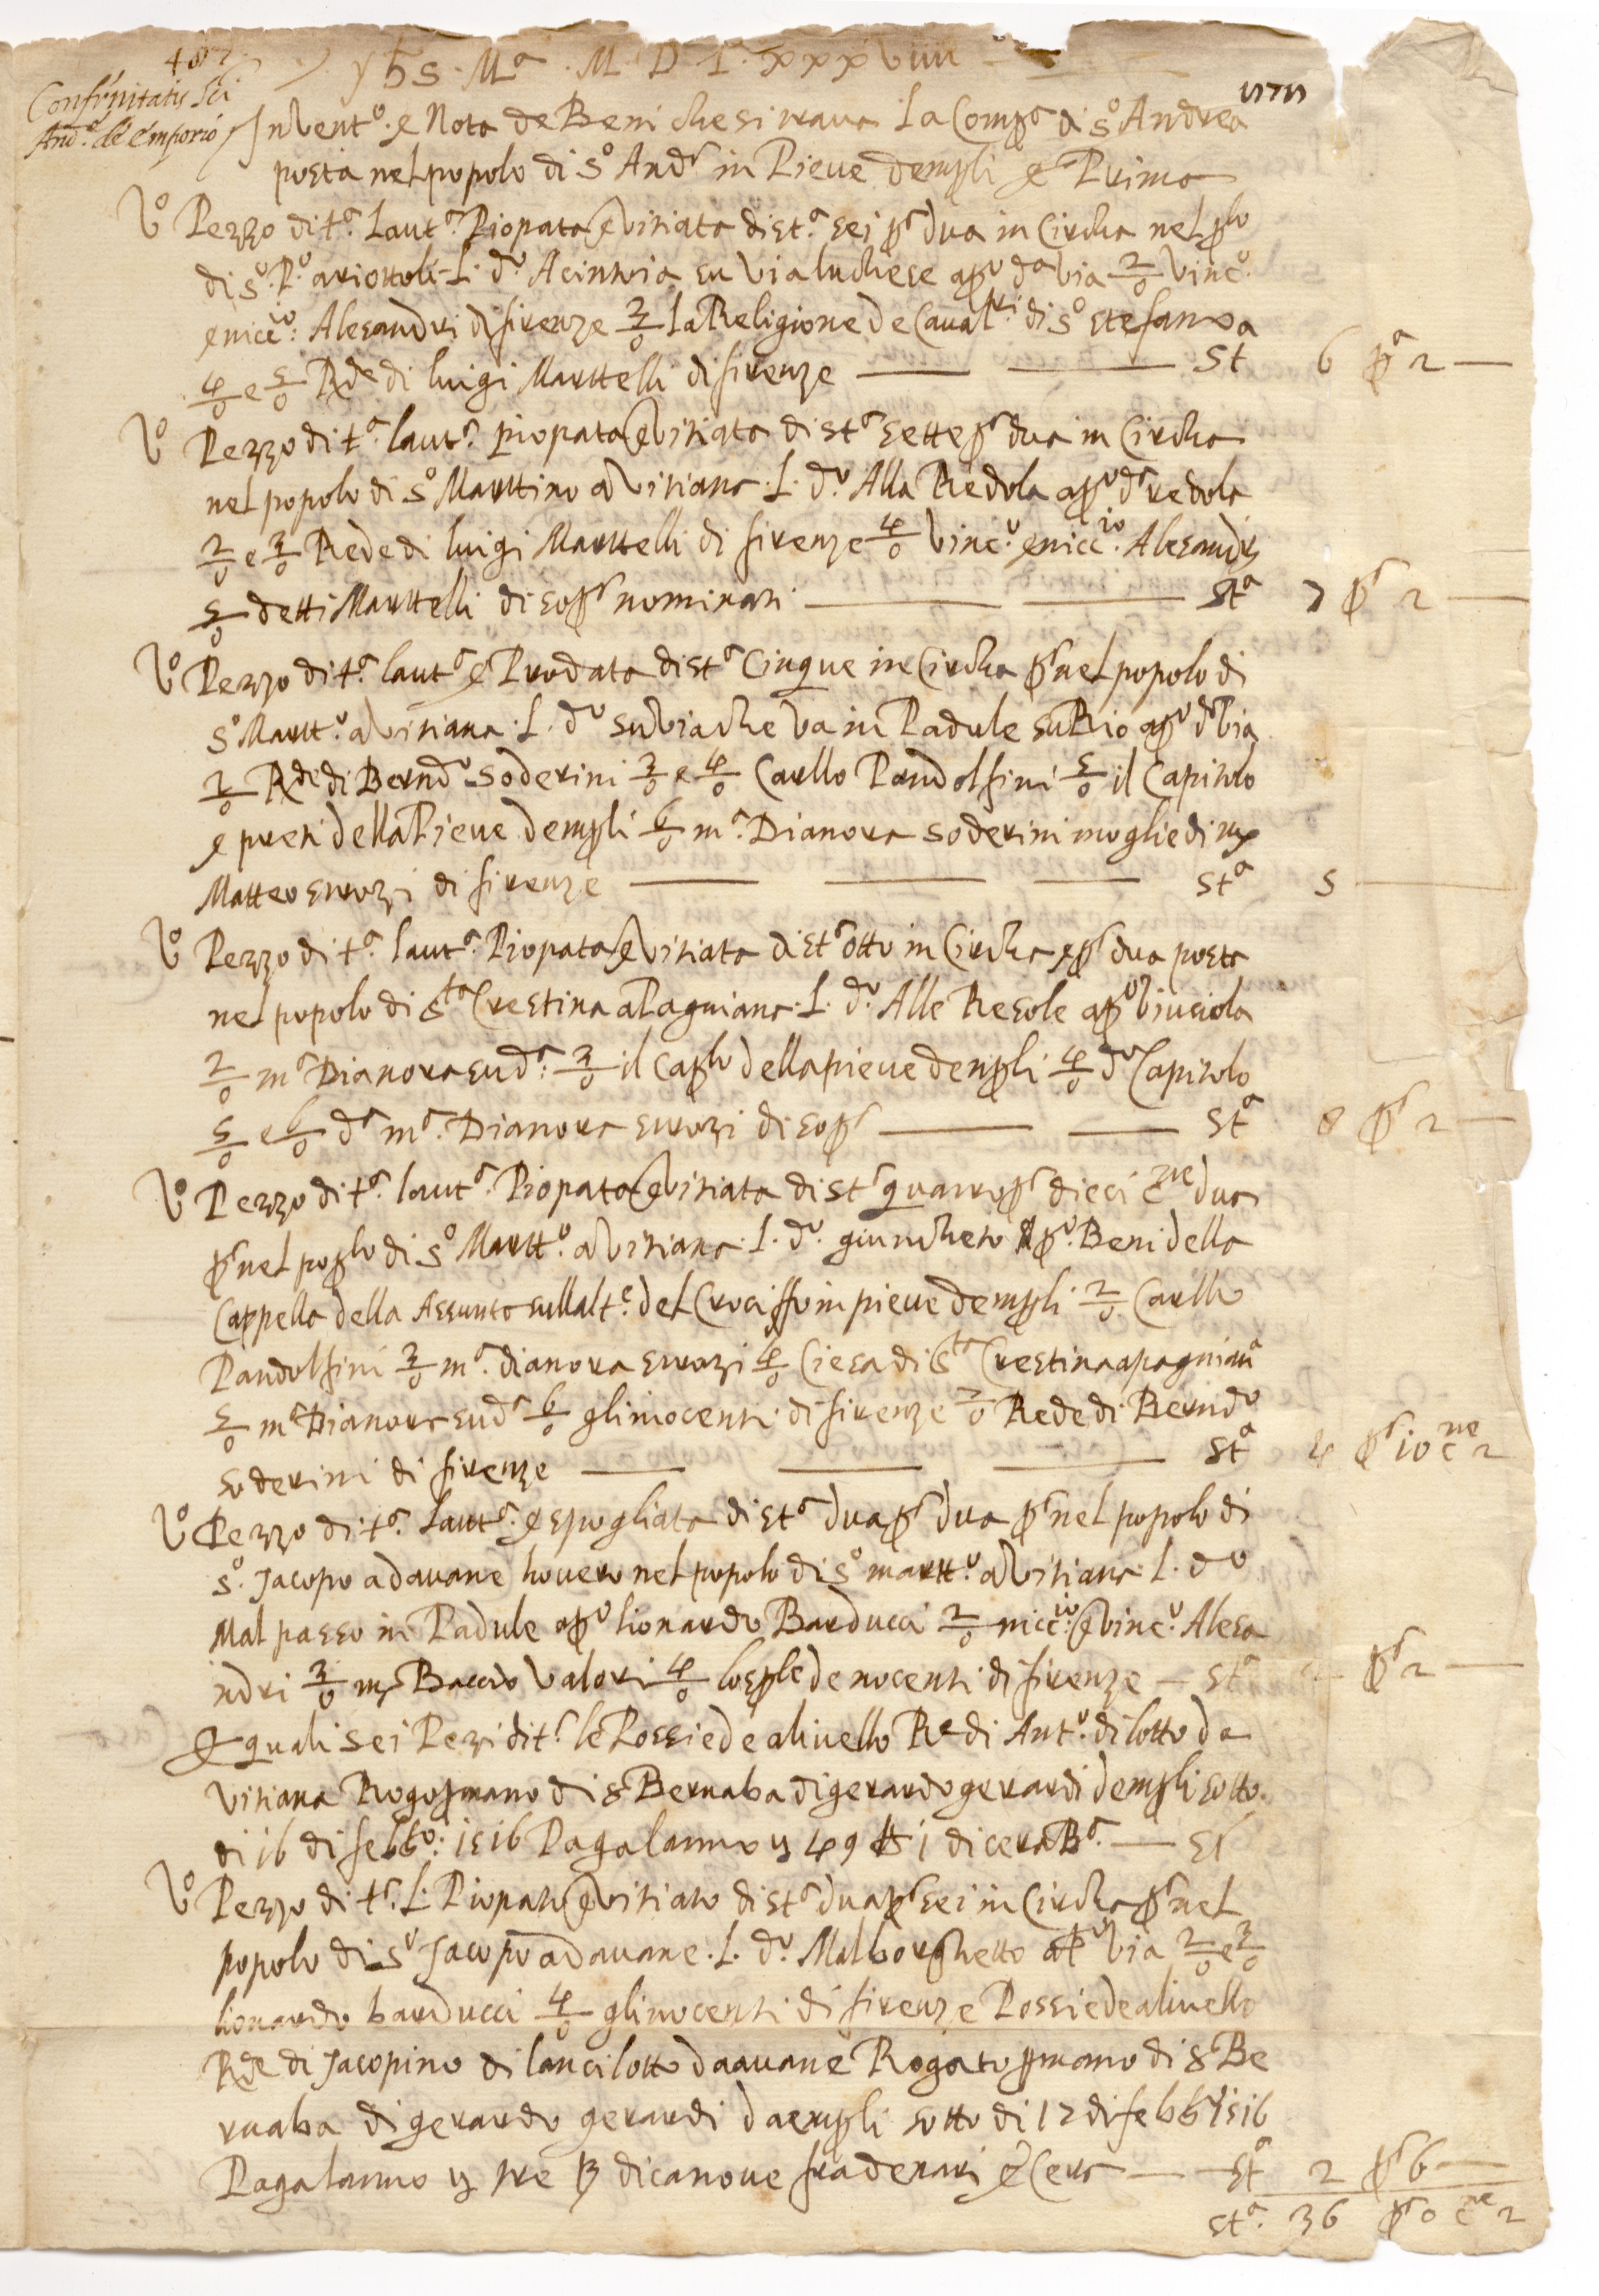 487
Yhs. Mª. M. D L. xxxviiii
Confr̃nitatis Sci
And.e de Emporio
Invent.º e Nota de Beni che si trava La Compª di Sº Andrea
posta nel popolo di Sº Andª in Pieve dempli e Prima
Vº Pezzo di tª. Lautª. Piopata e Vitiata di Stª. sei pª dua in Circha nel plo
di Sº. Pº. a riottoli L. dº Acintoia su via luchese apº dª via 2/0 Vincº.
e niccio: Alesandri di firenze 3/0 La Religione de Cavalri: di Sº stefano a
4/0 e 5/0 Rde di luigi Marttelli di firenze — St 6 pª 2 —
Vº Pezzo di tª. lautª. piopata e vitiata di stª sette pª dua in Circha
nel popolo di Sº Marttino a Vitiana. L. dº. Alla Redola apº dª redola
2/0 e 3/0 Rede di luigi Marttelli di firenze 4/0 Vincº. e niccio. Alesandri
5/0 detti Marttelli di sopª nominati — Stª 7 pª 2 —
Vº Pezzo di tª. lautª e Prodata di stª Cinque in Circha pª nel popolo di
Sº Martt.º a Vitiana. L. dº su via che va in Padule su Rio apº dª Via
2/0 Rde di Berndº Soderini 3/0 e 4/0 Carllo Pandolfini 5/0 il Capitolo
e preti della Pieve dempli 6/0 mª. Dianora soderini moglie di mr
Matteo strozi di firenze — stª 5 —
Vº Pezzo di tª. lautª. Piopata e Vitiata di stª otto in Circha e pª dua posta
nel popolo di Sta Crestina a Pagniana. L. dº. Alle Resole apº Viuciola
2/0 mª Dianora sudª: 3/0 il Caplo della pieve dempli 4/0 dº Capitolo
5/0 e 6/0 dª mª. Dianora strozi di sopª — Stª 8 pª 2 —
Vº Pezzo di tª. lautª. Piopata e Vitiata di stª quatro pª dieci cne dua
pª nel poplo di Sº Marttº. a Vitiana. L. dº. giuncheto apº. Beni della
Cappella della Assunta sullalt.e del Crocifisso in pieve dempli 2/0 Carllo
Pandolfini 3/0 mª. dianora strozi 4/0 Ciesa di Sta Crestina a pagniana
5/0 mª Dianora sudª 6/0 glinocenti di firenze 7/0 Rede di Berndº
soderini di firenze — stª 4 pª 10 cne 2
Vº Pezzo di tª. Lautª. e spogliata di stª dua pª dua pª nel popolo di
Sº. Jacopo a davane hovero nel popolo di Sº marttº. a Vitiana. L. dº
Mal passo in Padule apº lionardo Barducci 2/0 niccio. e vincº. Alesa
ndri 3/0 mr Baccio Valori 4/0 losple de nocenti di firenze — stª 2 pª 2 —
e quali sei Pezi di tª. le Possiede a livello Re di Antº. di lotto da
Vitiana Rogo p mano di s Bernaba di gerardo gerardi dempli sotto.
di 16 di febbº: 1516 Paga lanno L 49 lb 1 di cera Bª. — St
Vº Pezzo di tª. L. Piopato e Vitiato di stª dua pª sei in Circha pª nel
popolo di Sº Jacopo a davane. L. dº. Malborghetto apº via 2/0 e 3/0
lionardo barducci 4/0 glinocenti di firenze Possiede a livello
Rde di Jacopino di lancilotto da avane Rogato p mano di s Be
rnaba di gerardo gerardi da empli sotto di 17 di febbº 1516
Paga lanno L tre s dicanove fra denari e Cera — Stª 2 pª 6 —
stª. 36 pª 0 cne 2